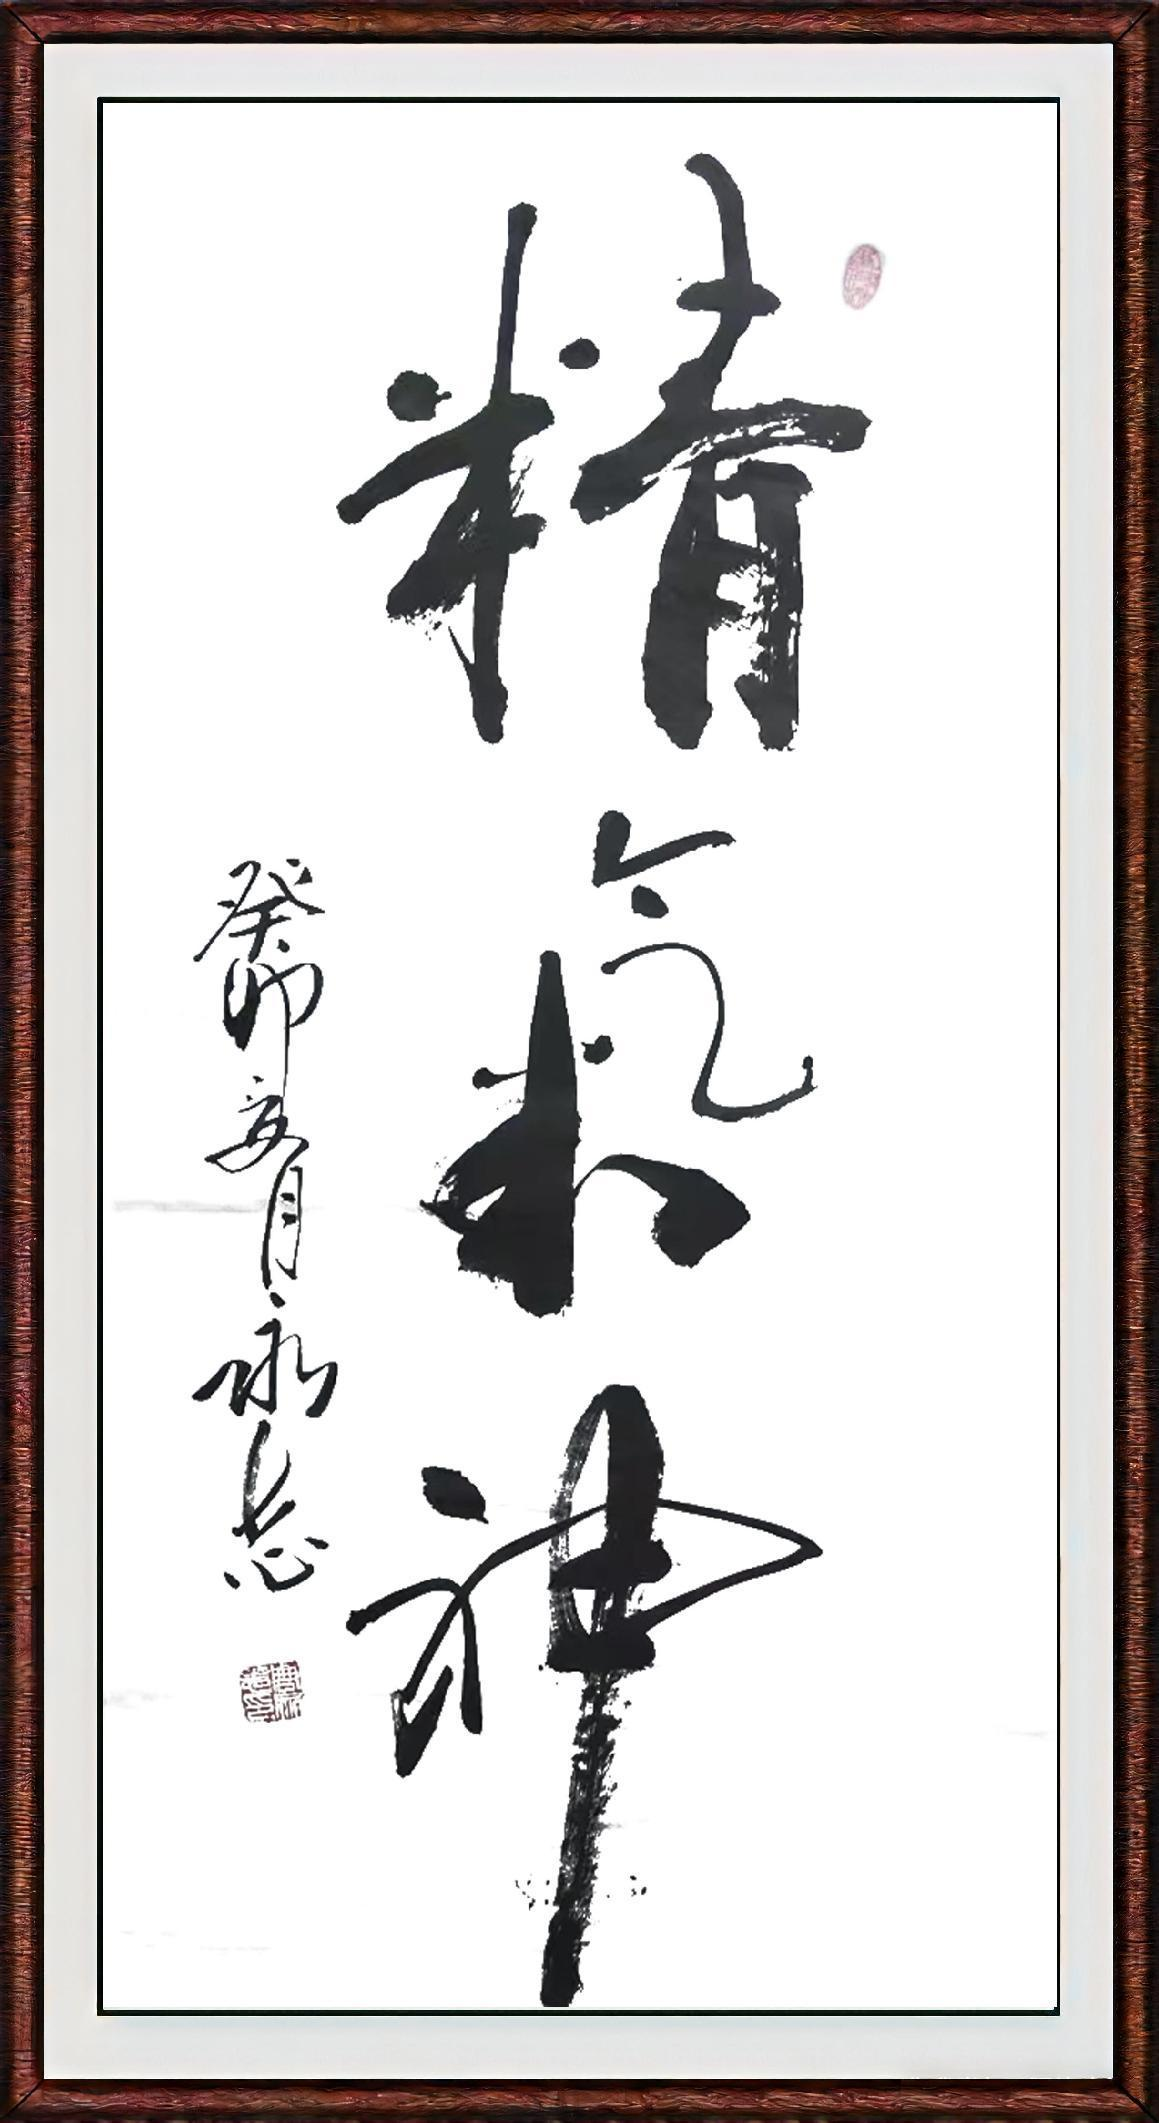 精氣神
癸卯亥月永志